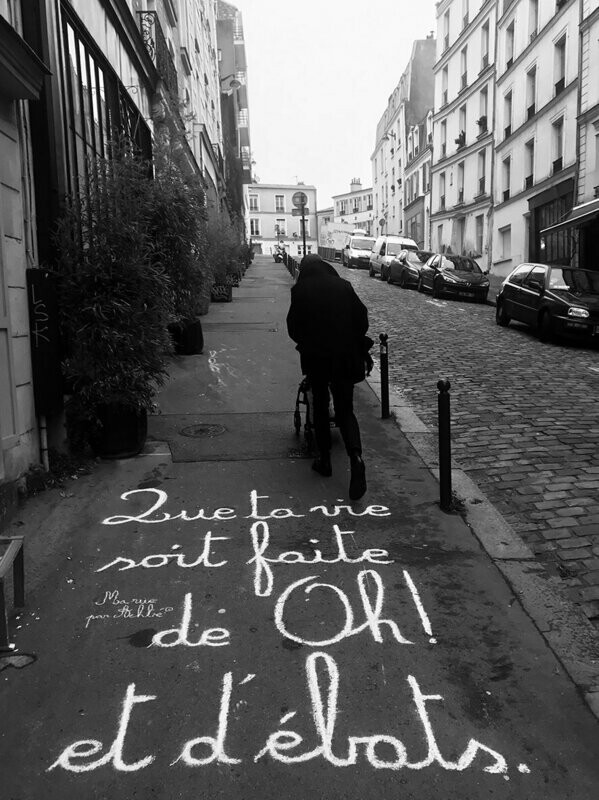 Que ta vie
soit faite
de Oh!
et d'ébats.
Ma rue
par Achbé